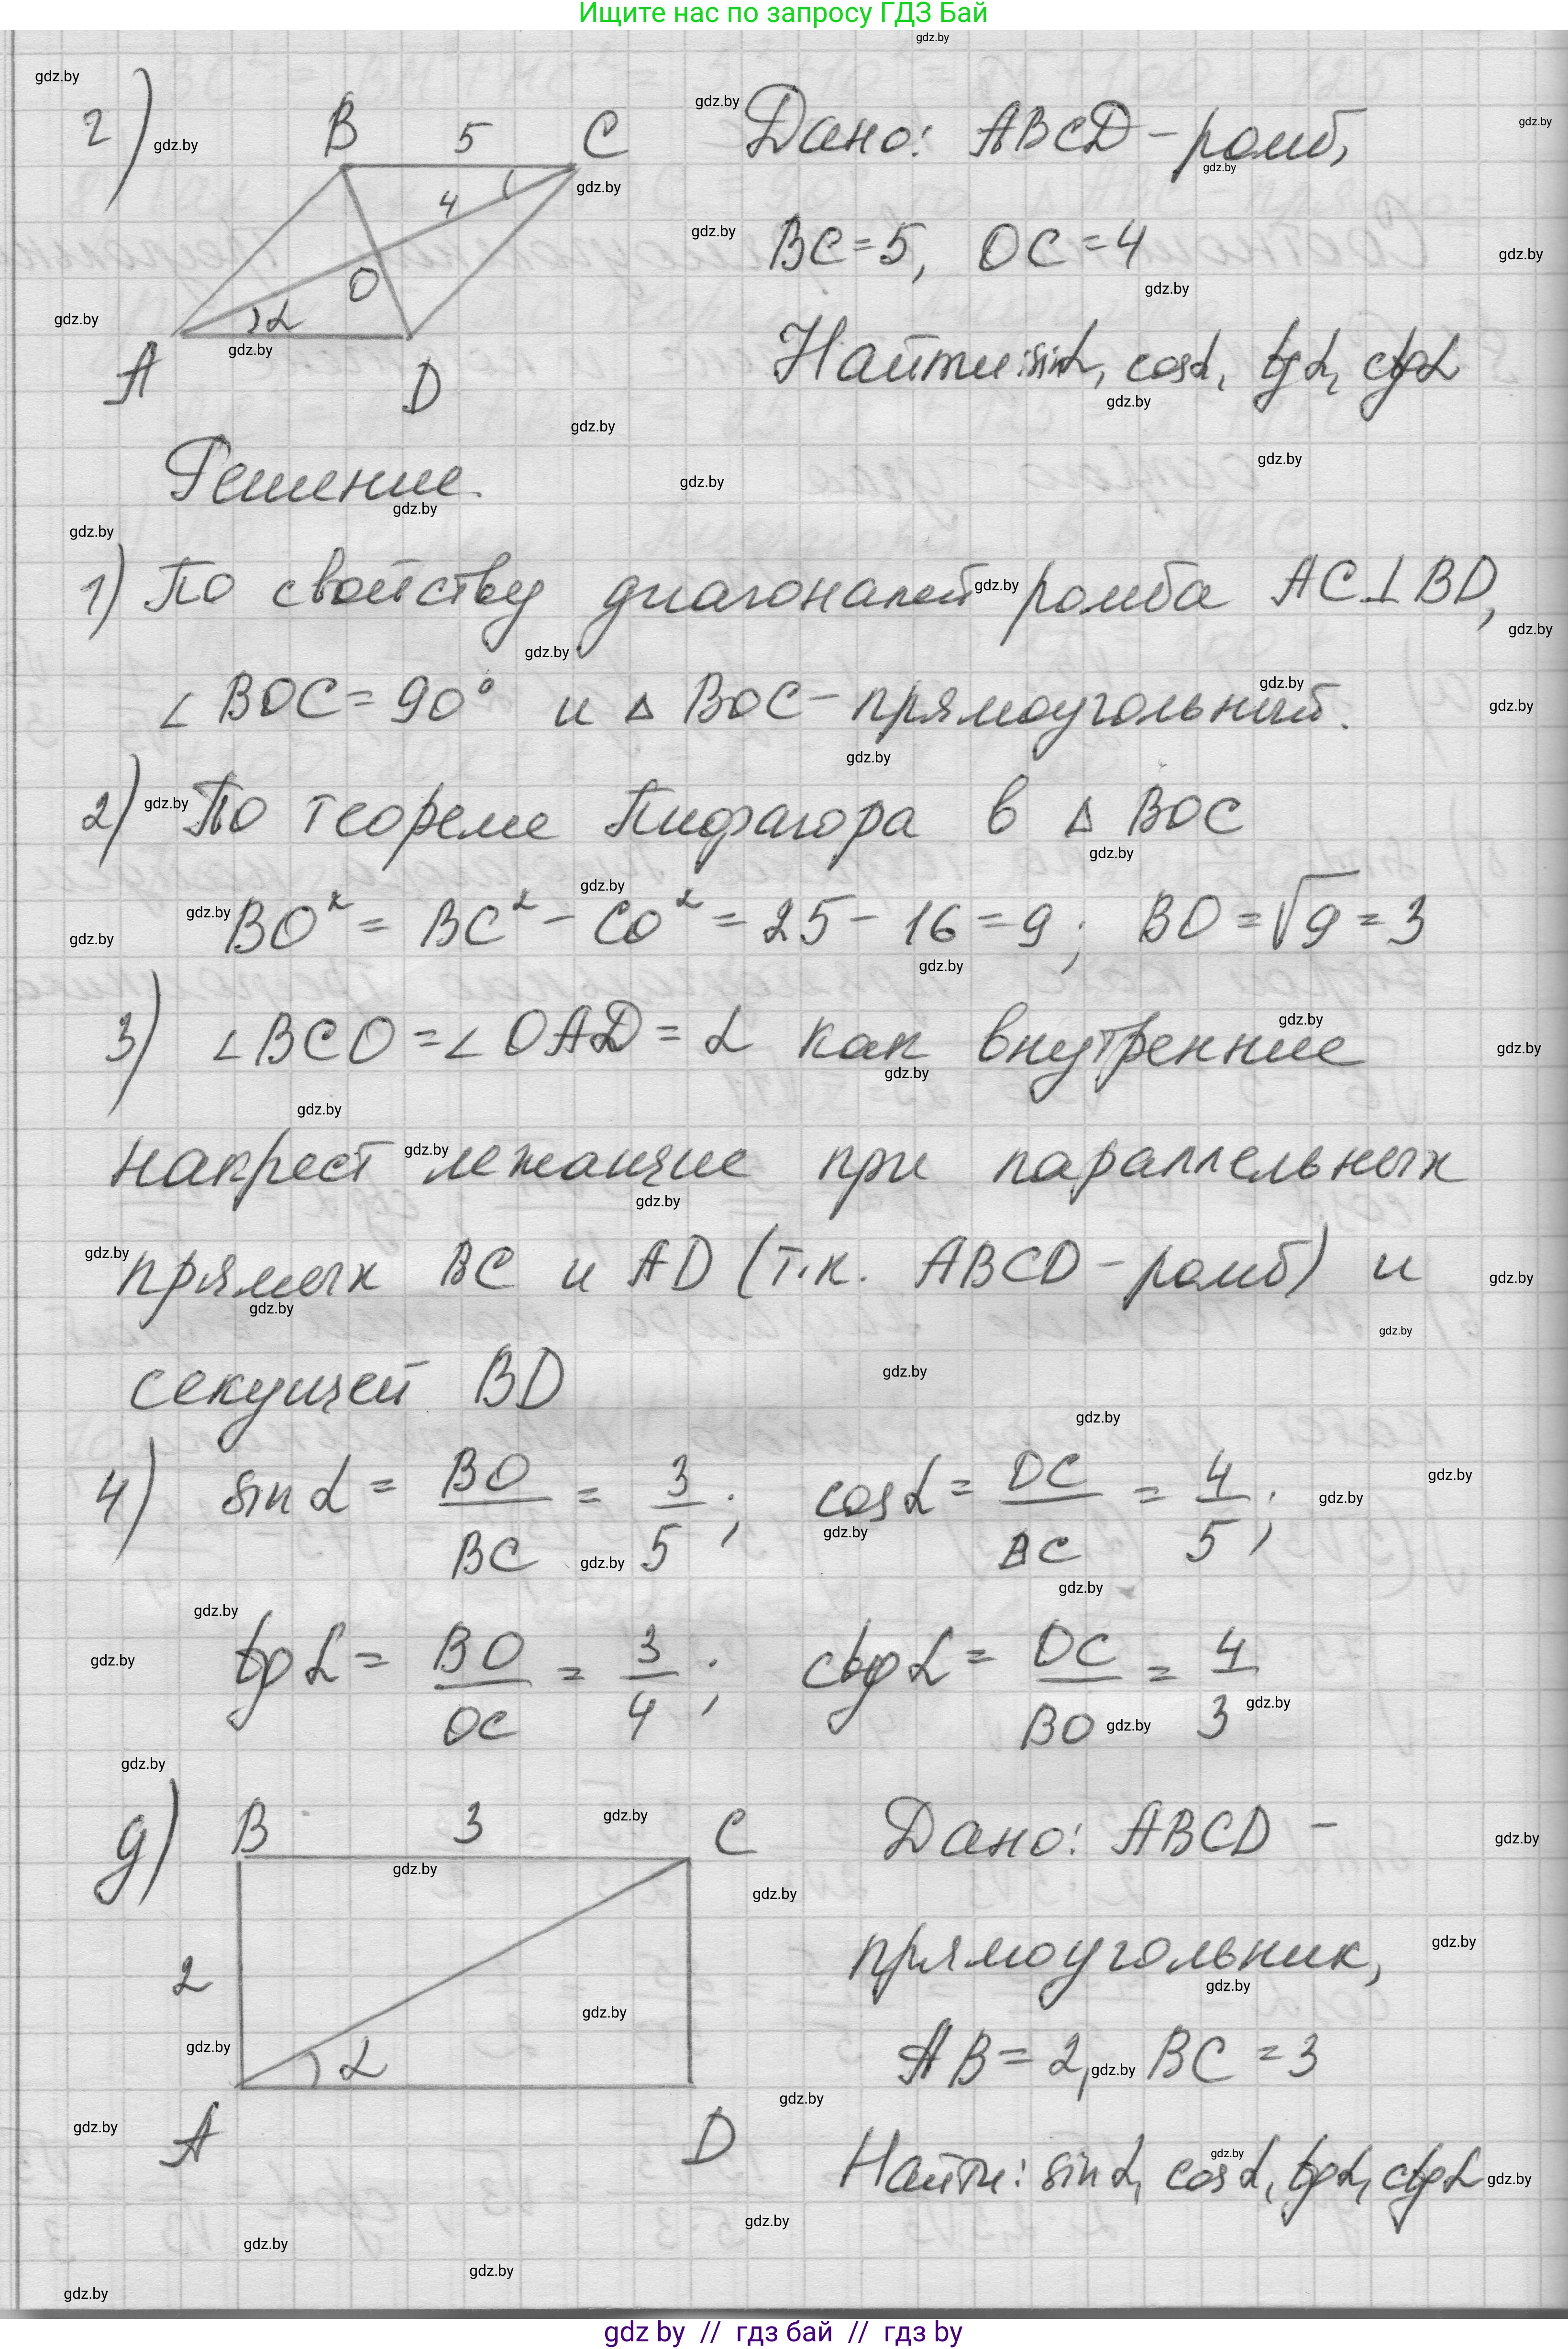 Ищите нас по запросу ГДЗ Бай
г)
B 5 C
4
O
α
A D
Дано: ABCD - ромб,
BC = 5, OC = 4
Найти: sinα, cosα, tgα, ctgα
Решение.
1) По свойству диагоналей ромба AC⊥BD,
∠BOC = 90° и △ BOC - прямоугольный.
2) По теореме Пифагора в △ BOC
BO² = BC² - CO² = 25 - 16 = 9; BO = √9 = 3
3) ∠BCO = ∠OAD = α как внутренние
накрест лежащие при параллельных
прямых BC и AD (т.к. ABCD - ромб) и
секущей BD
4) sinα = BO/BC = 3/5; cosα = OC/BC = 4/5;
tgα = BO/OC = 3/4; ctgα = OC/BO = 4/3
д)
B 3 C
2
α
A D
Дано: ABCD -
прямоугольник,
AB = 2, BC = 3
Найти: sinα, cosα, tgα, ctgα
gdz.by
gdz by // гдз бай // гдз by